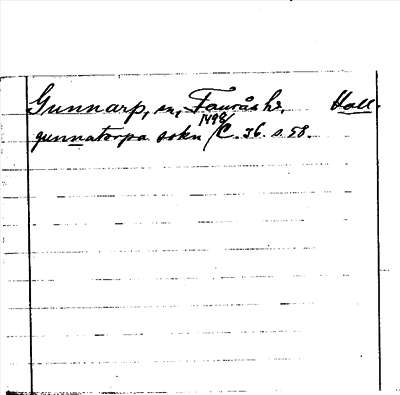 Gunnarp, sn, Fauråshd. Hall.
1498
gunnatorpa sokn /C. 36. s. 58.